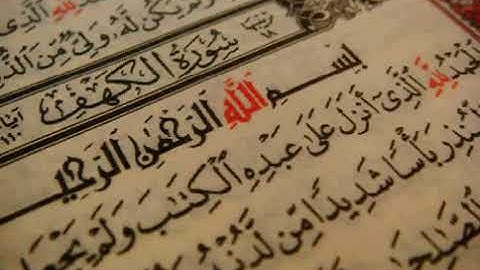 وَلَمْ يَكُنْ لَهُ وَلِيٌّ مِنَ الذُّ
سُورَةُ الْكَهْفِ
بِسْمِ اللَّهِ الرَّحْمَنِ الرَّحِيمِ
الْحَمْدُ لِلَّهِ الَّذِي أَنْزَلَ عَلَى عَبْدِهِ الْكِتَابَ وَلَمْ يَجْعَلْ
لِيُنْذِرَ بَأْسًا شَدِيدًا مِنْ لَدُنْهُ
الصَّالِحَا